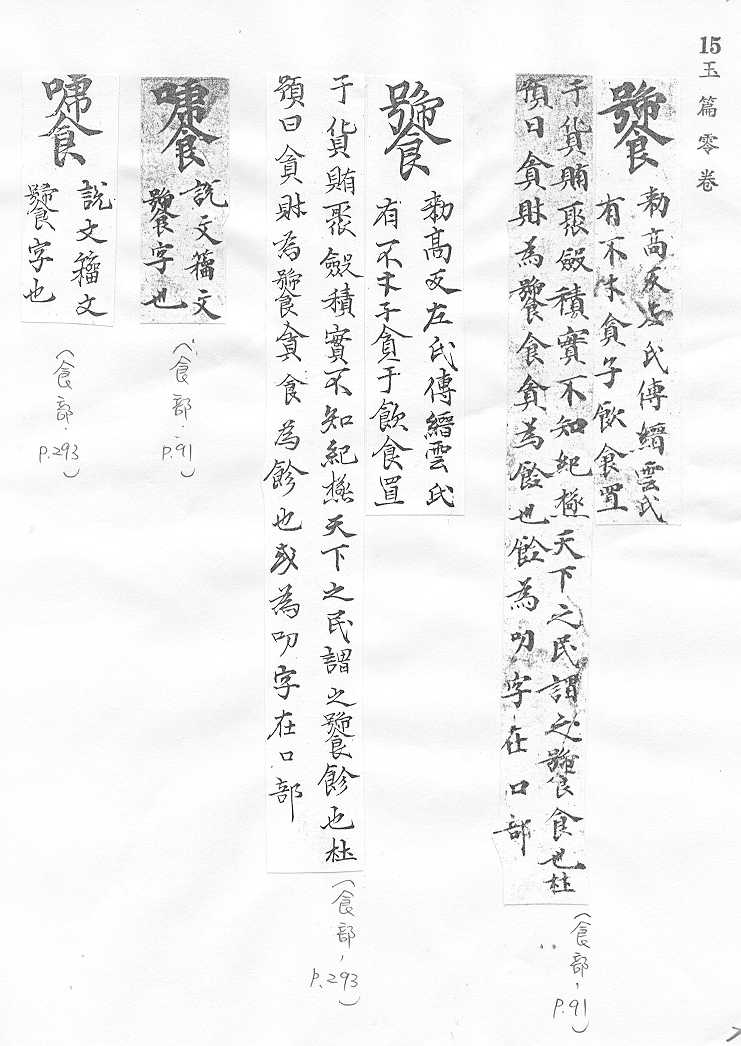 15
玉篇零卷
饕 勑高反左氏傳縉雲氏
有不才子貪于飲食冒
于貨賄聚斂積實不知紀極天下之民謂之饕食也杜
預曰貪財為饕食貪為
也
為叨字在口部
(食部,
P.91)
饕
勑高反左氏傳縉雲氏
有不才子貪于飲食冒
于貨賄聚斂積實不知紀極天下之民謂之饕飻也杜
預曰貪財為饕貪食為飻也或為叨字在口部
(食部,
P.293)
說文籀文
饕字也
(食部,
P.91)
說文籀文
饕字也
(食部,
P.293)